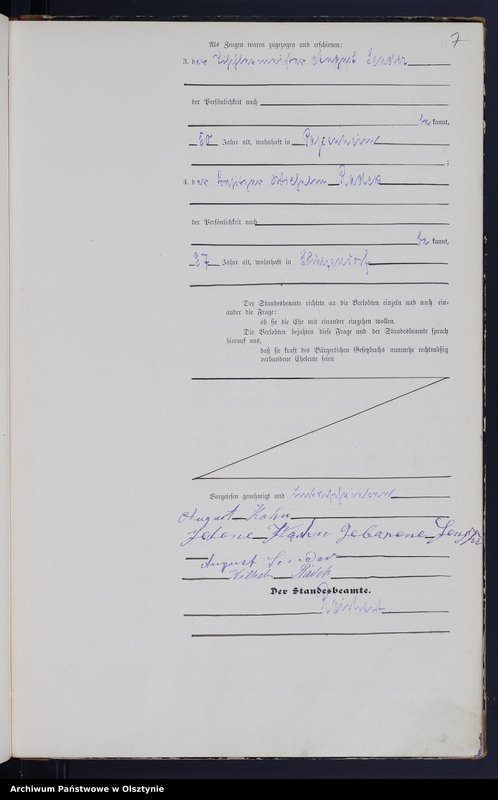 7
Als Zeugen waren zugezogen und erschienen:
3. der Tischlermeister August Sender
der Persönlichkeit nach
be kannt,
50 Jahre alt, wohnhaft in
4. der Besitzer Wilhelm Radek
der Persönlichkeit nach
be kannt,
37 Jahre alt, wohnhaft in
Der Standesbeamte richtete an die Verlobten einzeln und nach ein-
ander die Frage:
ob sie die Ehe mit einander eingehen wollen.
Die Verlobten bejahten diese Frage und der Standesbeamte sprach
hierauf aus,
daß sie kraft des Bürgerlichen Gesetzbuchs nunmehr rechtmäßig
verbundene Eheleute seien
Vorgelesen genehmigt und unterschrieben
August Hahn
Helene Hahn geborene
August Sender
Wilhelm Radek
Der Standesbeamte.
Archiwum Państwowe w Olsztynie